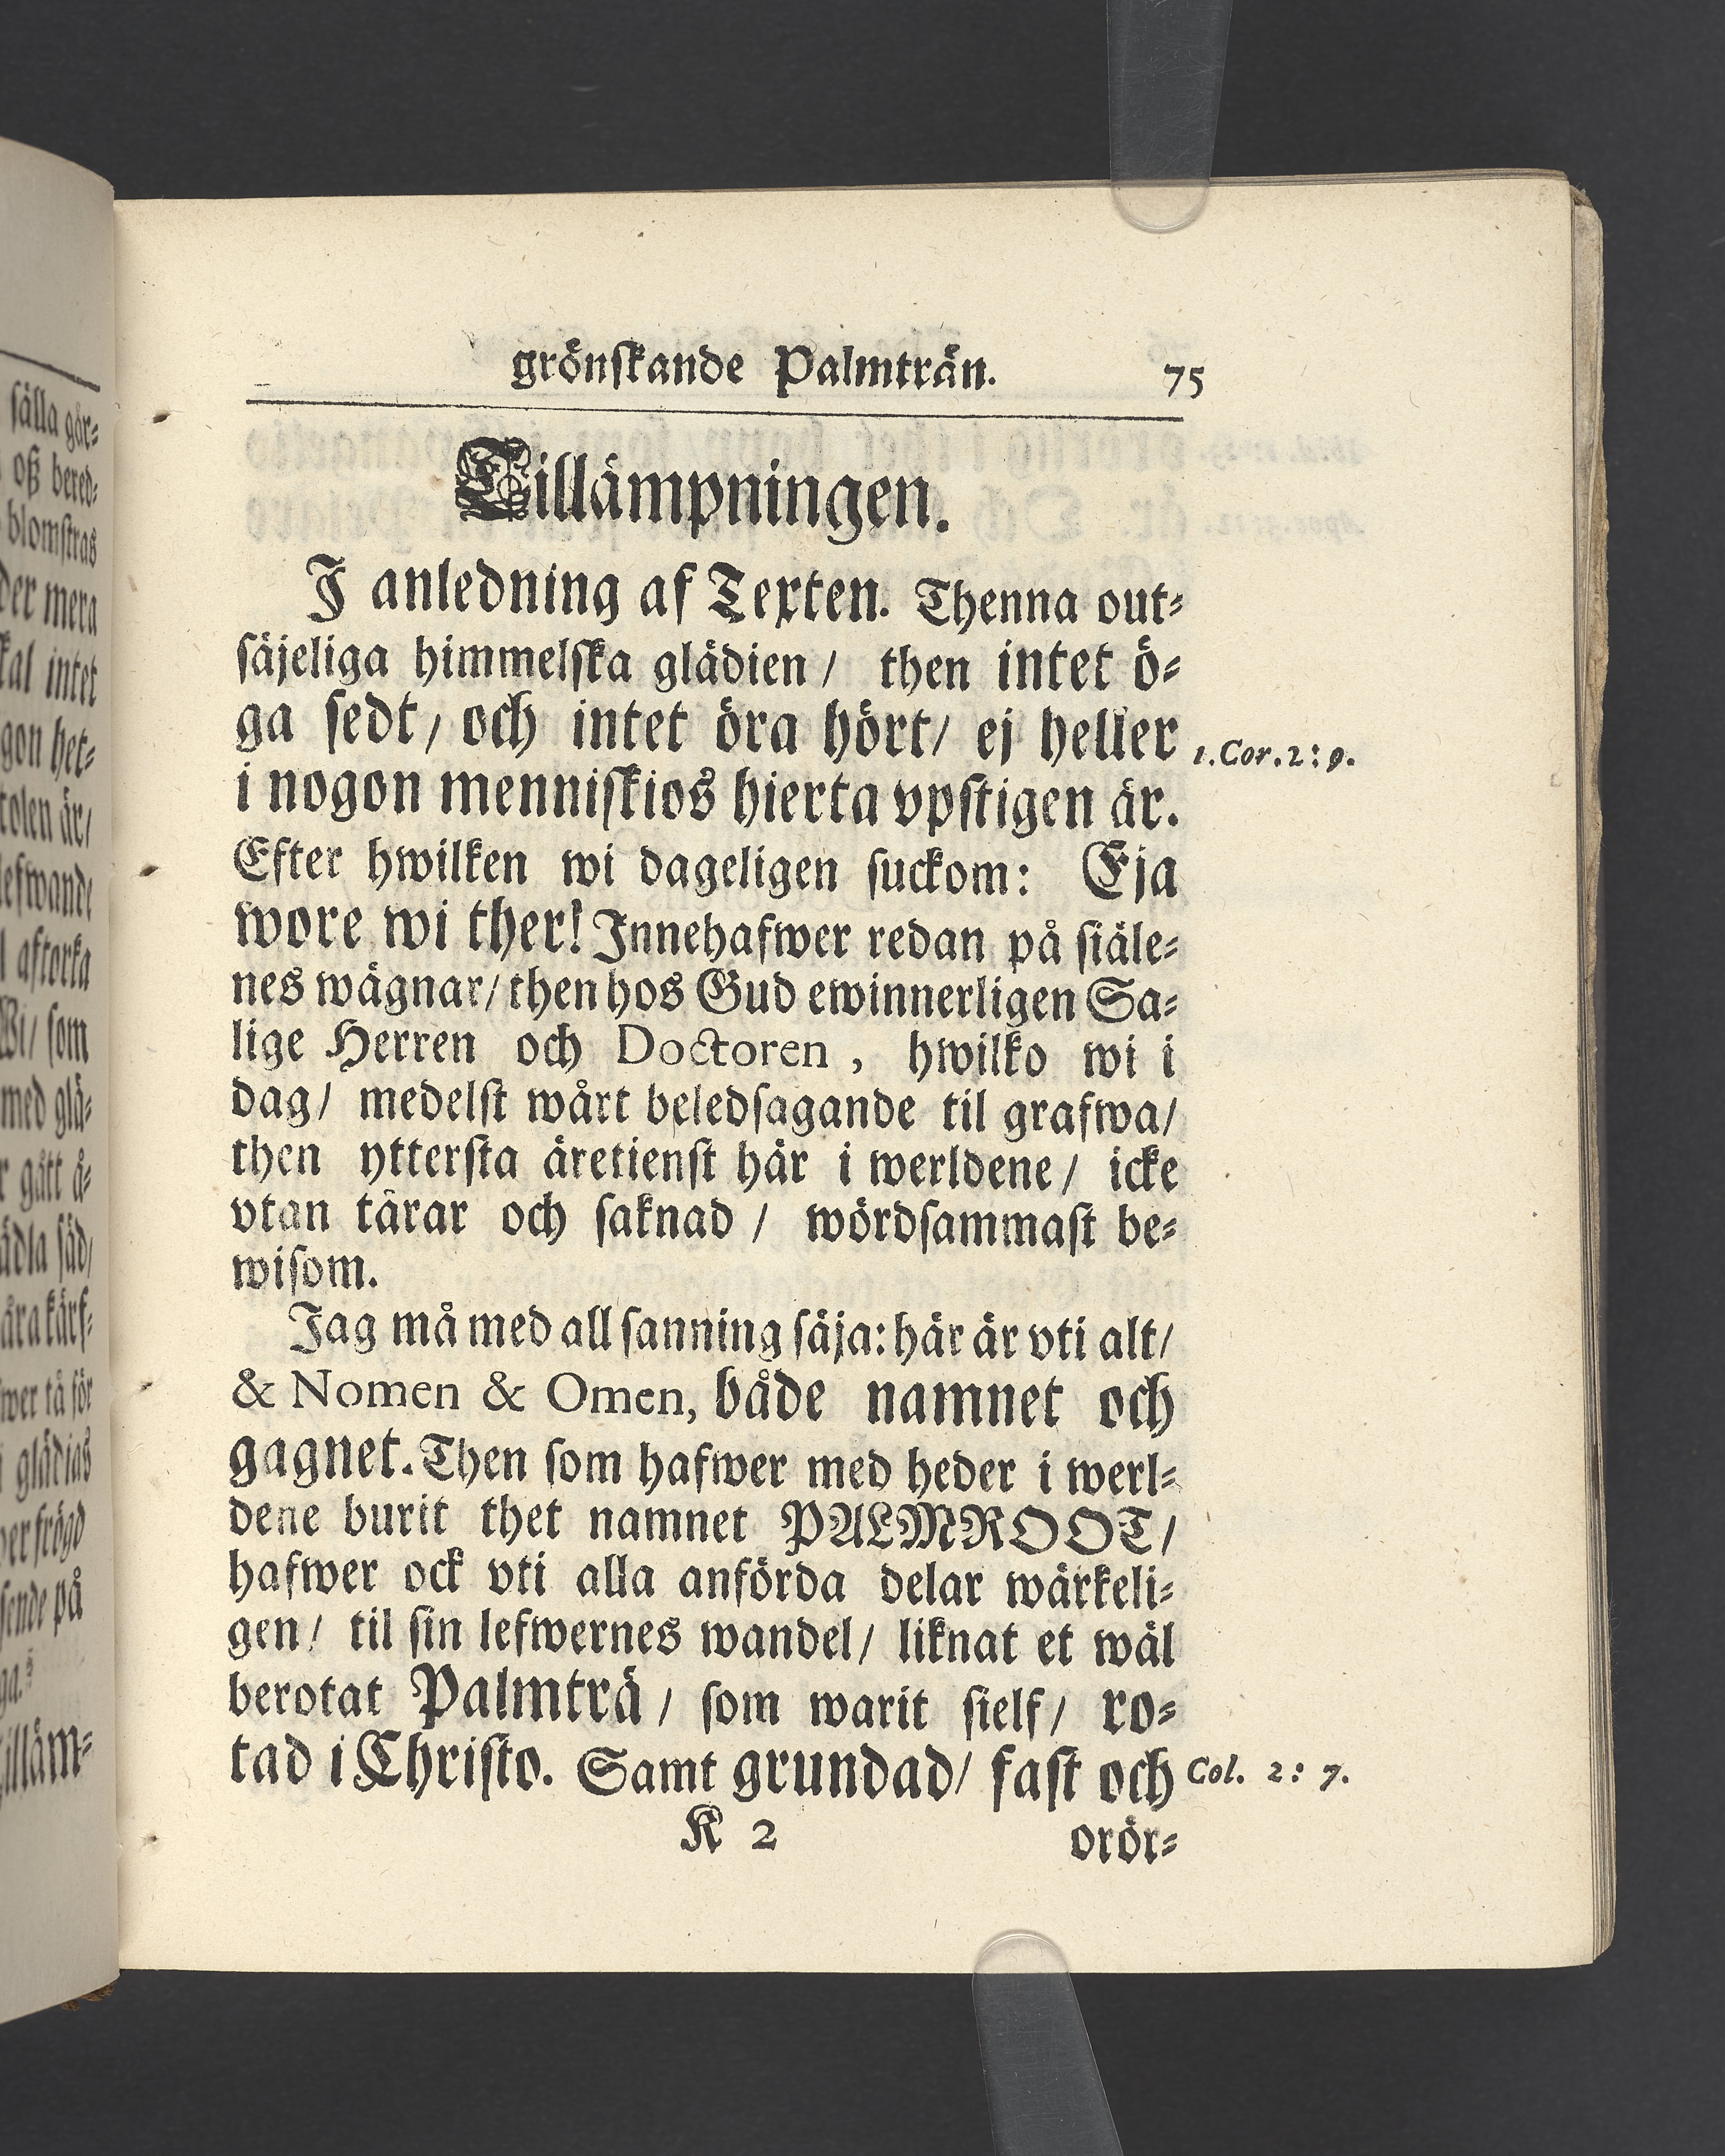 grönskande Palmträn. 75
Tillämpningen.
I anledning af Texten. Thenna out⸗
säjeliga himmelska glädien / then intet ö⸗
ga sedt / och intet öra hört / ej heller
1. Cor. 2 : 9.
i nogon menniskios hierta vpstigen är.
Efter hwilken wi dageligen suckom: Eja
wore wi ther! Innehafwer redan på siäle⸗
nes wägnar / then hos Gud ewinnerligen Sa⸗
lige Herren och Doctoren , hwilko wi i
dag / medelst wårt beledsagande til grafwa /
then yttersta äretienst här i werldene / icke
vtan tårar och saknad / wördsammast be⸗
wisom.
Jag må med all sanning säja: här är vti alt /
& Nomen & Omen, både namnet och
gagnet. Then som hafwer med heder i werl⸗
dene burit thet namnet PALMROOT /
hafwer ock vti alla anförda delar wärkeli⸗
gen / til sin lefwernes wandel / liknat et wäl
berotat Palmträ / som warit sielf / ro⸗
tad i Christo. Samt grundad / fast och
Col. 2 : 7.
K 2 orör⸗
sälla går⸗
oß bered⸗
blomstras
der mera
kal intet
gon het⸗
tolen är /
lefwande
aftorka
Wi / som
med glä⸗
gått å⸗
ädla säd /
åra kärf⸗
wer tå för
glädias
sende på
illäm⸗